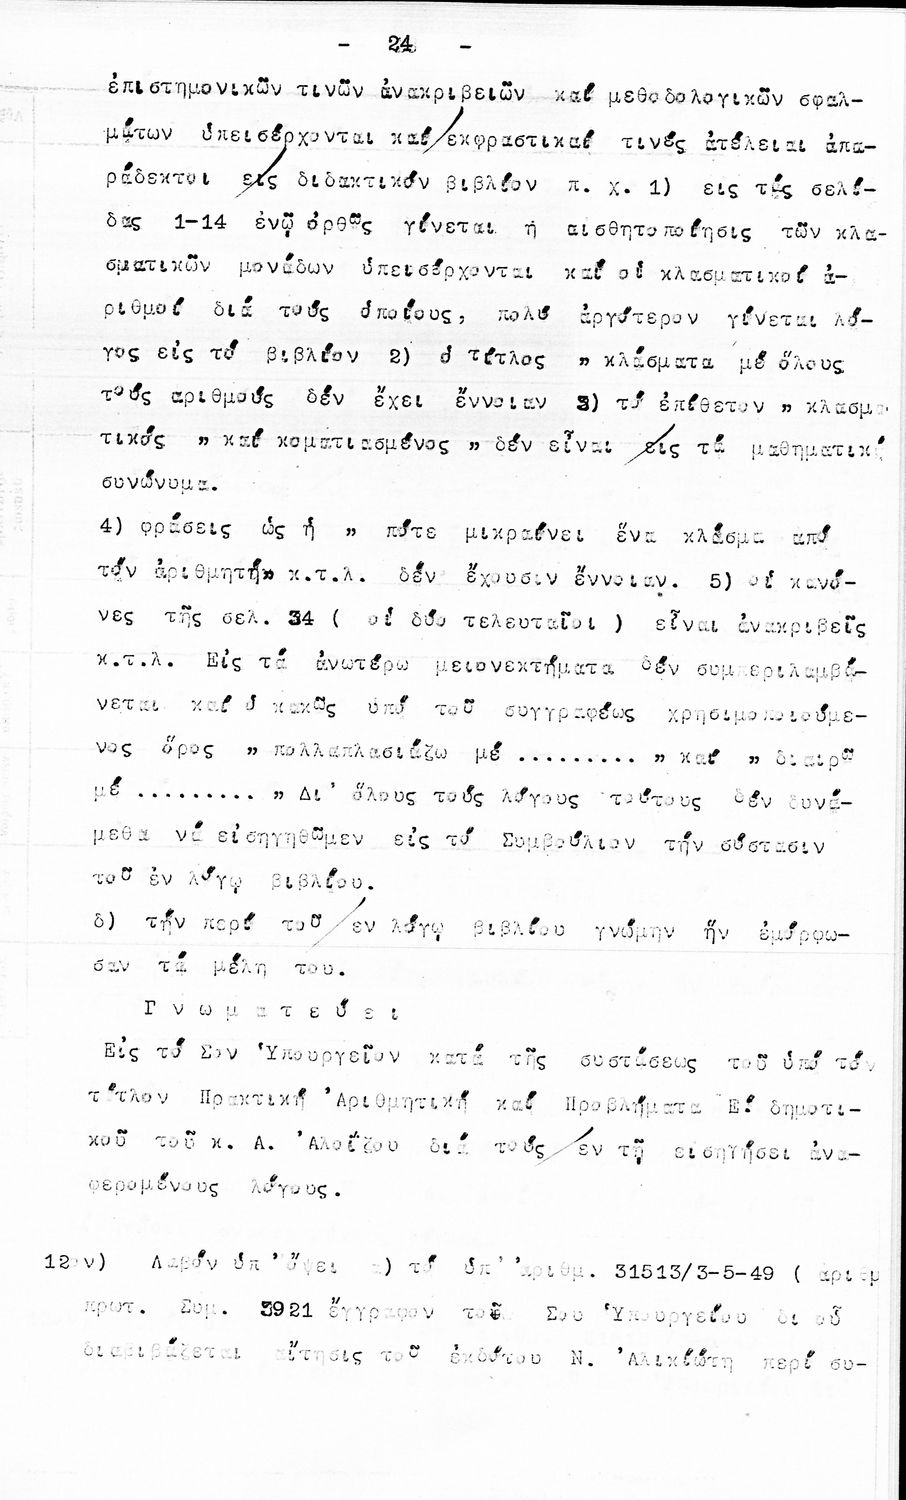 - 24 -
ἐπιστημονικῶν τινῶν ἀνακριβειῶν καί μεθοδολογικῶν σφαλ-
μάτων ὑπεισέρχονται καί ἐκφραστικαί τινές ἀτέλειαι ἀπα-
ράδεκτοι εἰς διδακτικόν βιβλίον π. χ. 1) εις τάς σελί-
δας 1-14 ἐνῷ ὀρθῶς γίνεται ἡ αισθητοποίησις τῶν κλα-
σματικῶν μονάδων ὑπεισέρχονται καί οἱ κλασματικοί ἀ-
ριθμοί διά τούς ὁποίους, πολύ ἀργότερον γίνεται λό-
γος εἰς τό βιβλίον 2) ὁ τίτλος " κλάσματα μέ ὅλους
τούς αριθμούς δέν ἔχει ἔννοιαν 3) τό ἐπίθετον " κλασμα-
τικός " καί κοματιασμένος " δέν εἶναι εἰς τά μαθηματικά
συνώνυμα.
4) φράσεις ὡς ἡ " πότε μικραίνει ἕνα κλάσμα από
τόν ἀριθμητή" κ.τ.λ. δέν ἔχουσιν ἔννοιαν. 5) οἱ κανό-
νες τῆς σελ. 34 ( οἱ δύο τελευταῖοι ) εἶναι ἀνακριβεῖς
κ.τ.λ. Εἰς τά ἀνωτέρω μειονεκτήματα δέν συμπεριλαμβά-
νεται καί ὁ κακῶς ὑπό τοῦ συγγραφέως χρησιμοποιούμε-
νος ὅρος " πολλαπλασιάζω μέ ......... " καί " διαιρῶ
μέ ......... " Δι' ὅλους τούς λόγους τούτους δέν δυνά-
μεθα νά εἰσηγηθῶμεν εἰς τό Συμβούλιον τήν σύστασιν
τοῦ ἐν λόγῳ βιβλίου.
δ) τήν περί τοῦ ἐν λόγῳ βιβλίου γνώμην ἥν ἐμόρφω-
σαν τά μέλη του.
Γ ν ω μ α τ ε ύ ε ι
Εἰς τό Σον Ὑπουργεῖον κατά τῆς συστάσεως τοῦ ὑπό τόν
τίτλον Πρακτική Ἀριθμητική καί Προβλήματα Ε! δημοτι-
κοῦ τοῦ κ. Α. Ἀλοΐζου διά τούς ἐν τῇ εισηγήσει ἀνα-
φερομένους λόγους.
12ον) Λαβόν ὑπ' ὄψει α) τό ὑπ' ἀριθμ. 31513/3-5-49 ( ἀριθμ
πρωτ. Συμ. 3921 ἔγγραφον τοῦ Σου Ὑπουργείου δι οὗ
διαβιβάζεται αἴτησις τοῦ ἐκδότου Ν. Ἀλικιώτη περί συ-